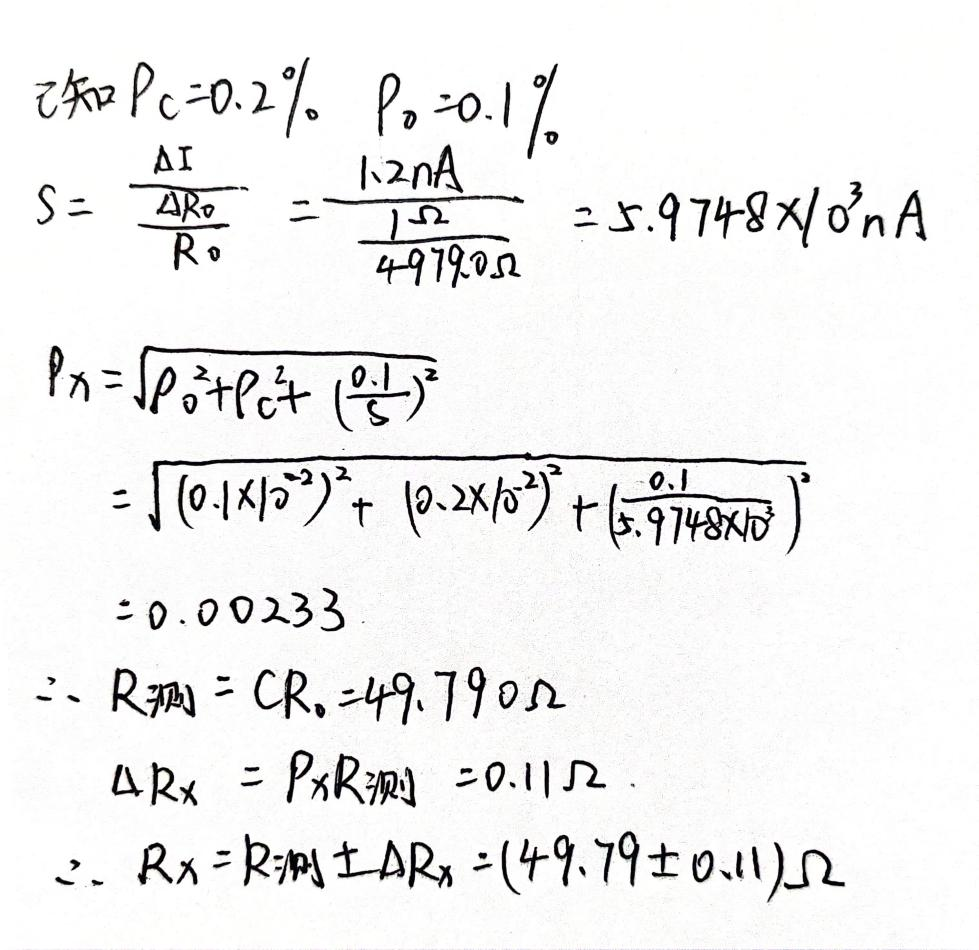 已知 Pc=0.2% P₀=0.1%
S = ΔI/(ΔR₀/R₀) = 1.2nA/(1Ω/4979.0Ω) = 5.9748×10³nA
Px = √(P₀²+Pc²+(0.1/S)²)
= √((0.1×10⁻²)²+(0.2×10⁻²)²+(0.1/(5.9748×10³))²)
= 0.00233
∴ R测 = CR₀ = 49.790Ω
ΔRx = PxR测 = 0.11Ω.
∴ Rx = R测 ± ΔRx = (49.79±0.11)Ω